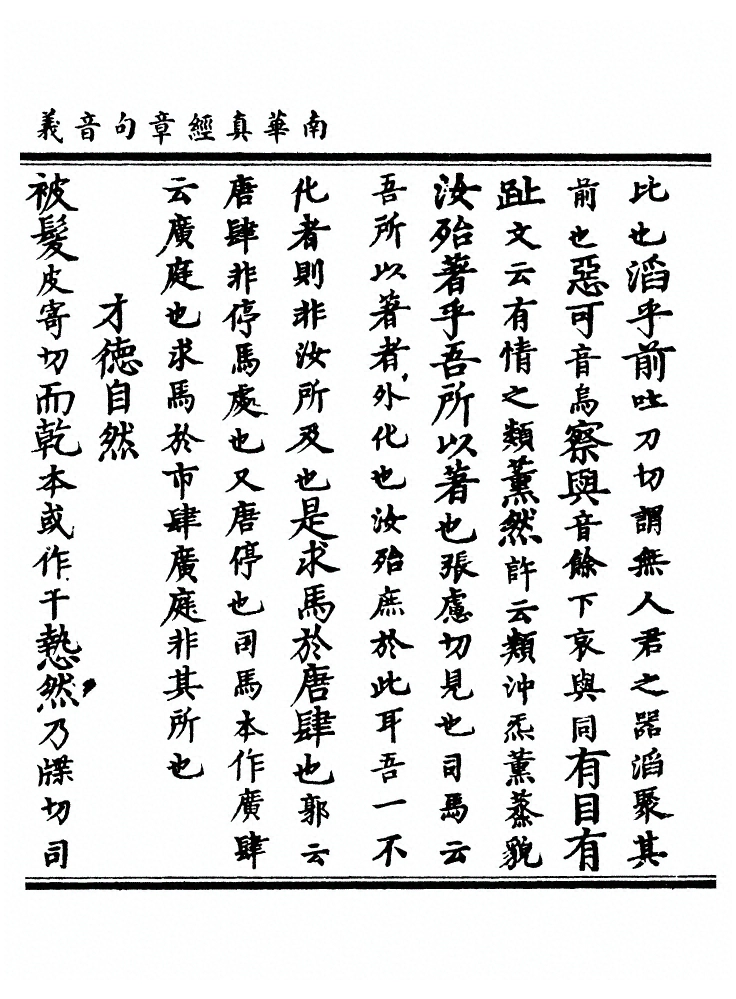 南華真經章句音義
比也滔乎前吐刀切謂無人君之器滔聚其
前也惡可音烏察與音餘下哀與同有目有
趾文云有情之類薰然許云類沖炁薰蒸貌
汝殆著乎吾所以著也張慮切見也司馬云
吾所以著者外化也汝殆庶於此耳吾一不
化者則非汝所及也是求馬於唐肆也郭云
唐肆非停馬處也又唐停也司馬本作廣肆
云廣庭也求馬於市肆廣庭非其所也
才德自然
被髮皮寄切而乾本或作干慹然乃牒切司